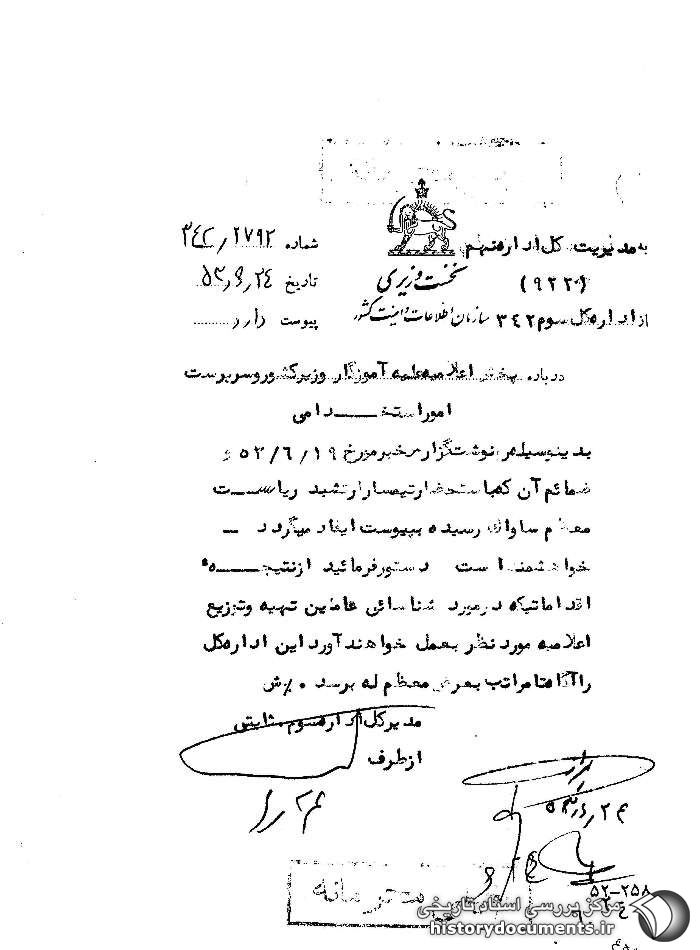 به مدیریت کل اداره نهم
(۹۲۲۰)
از اداره کل سوم ۳۴۲
نخست وزیری
سازمان اطلاعات و امنیت کشور
شماره ۳۴۲/۲۷۹۲
تاریخ ۵۳/۶/۲۴
پیوست دارد
درباره پخش اعلامیه علیه آموزگار وزیر کشور و سرپرست
امور استخدامی
بدینوسیله رونوشت گزارش خبر مورخ ۵۳/۶/۱۹ و
ضمائم آن که باستحضار تیمسار ارتشبد ریاست
معظم ساواک رسیده بپیوست ایفاد میگردد –
خواهشمند است دستور فرمائید از نتیجه
اقداماتیکه در مورد شناسائی عاملین تهیه و توزیع
اعلامیه مورد نظر بعمل خواهند آورد این اداره کل
را آگاه تا مراتب بعرض معظم له برسد ۰٪ش
مدیر کل اداره سوم . ثابتی
از طرف
۵۳/۶/۲۴
۵۲-۲۵۸
محرمانه
مرکز بررسی اسناد تاریخی
historydocuments.ir